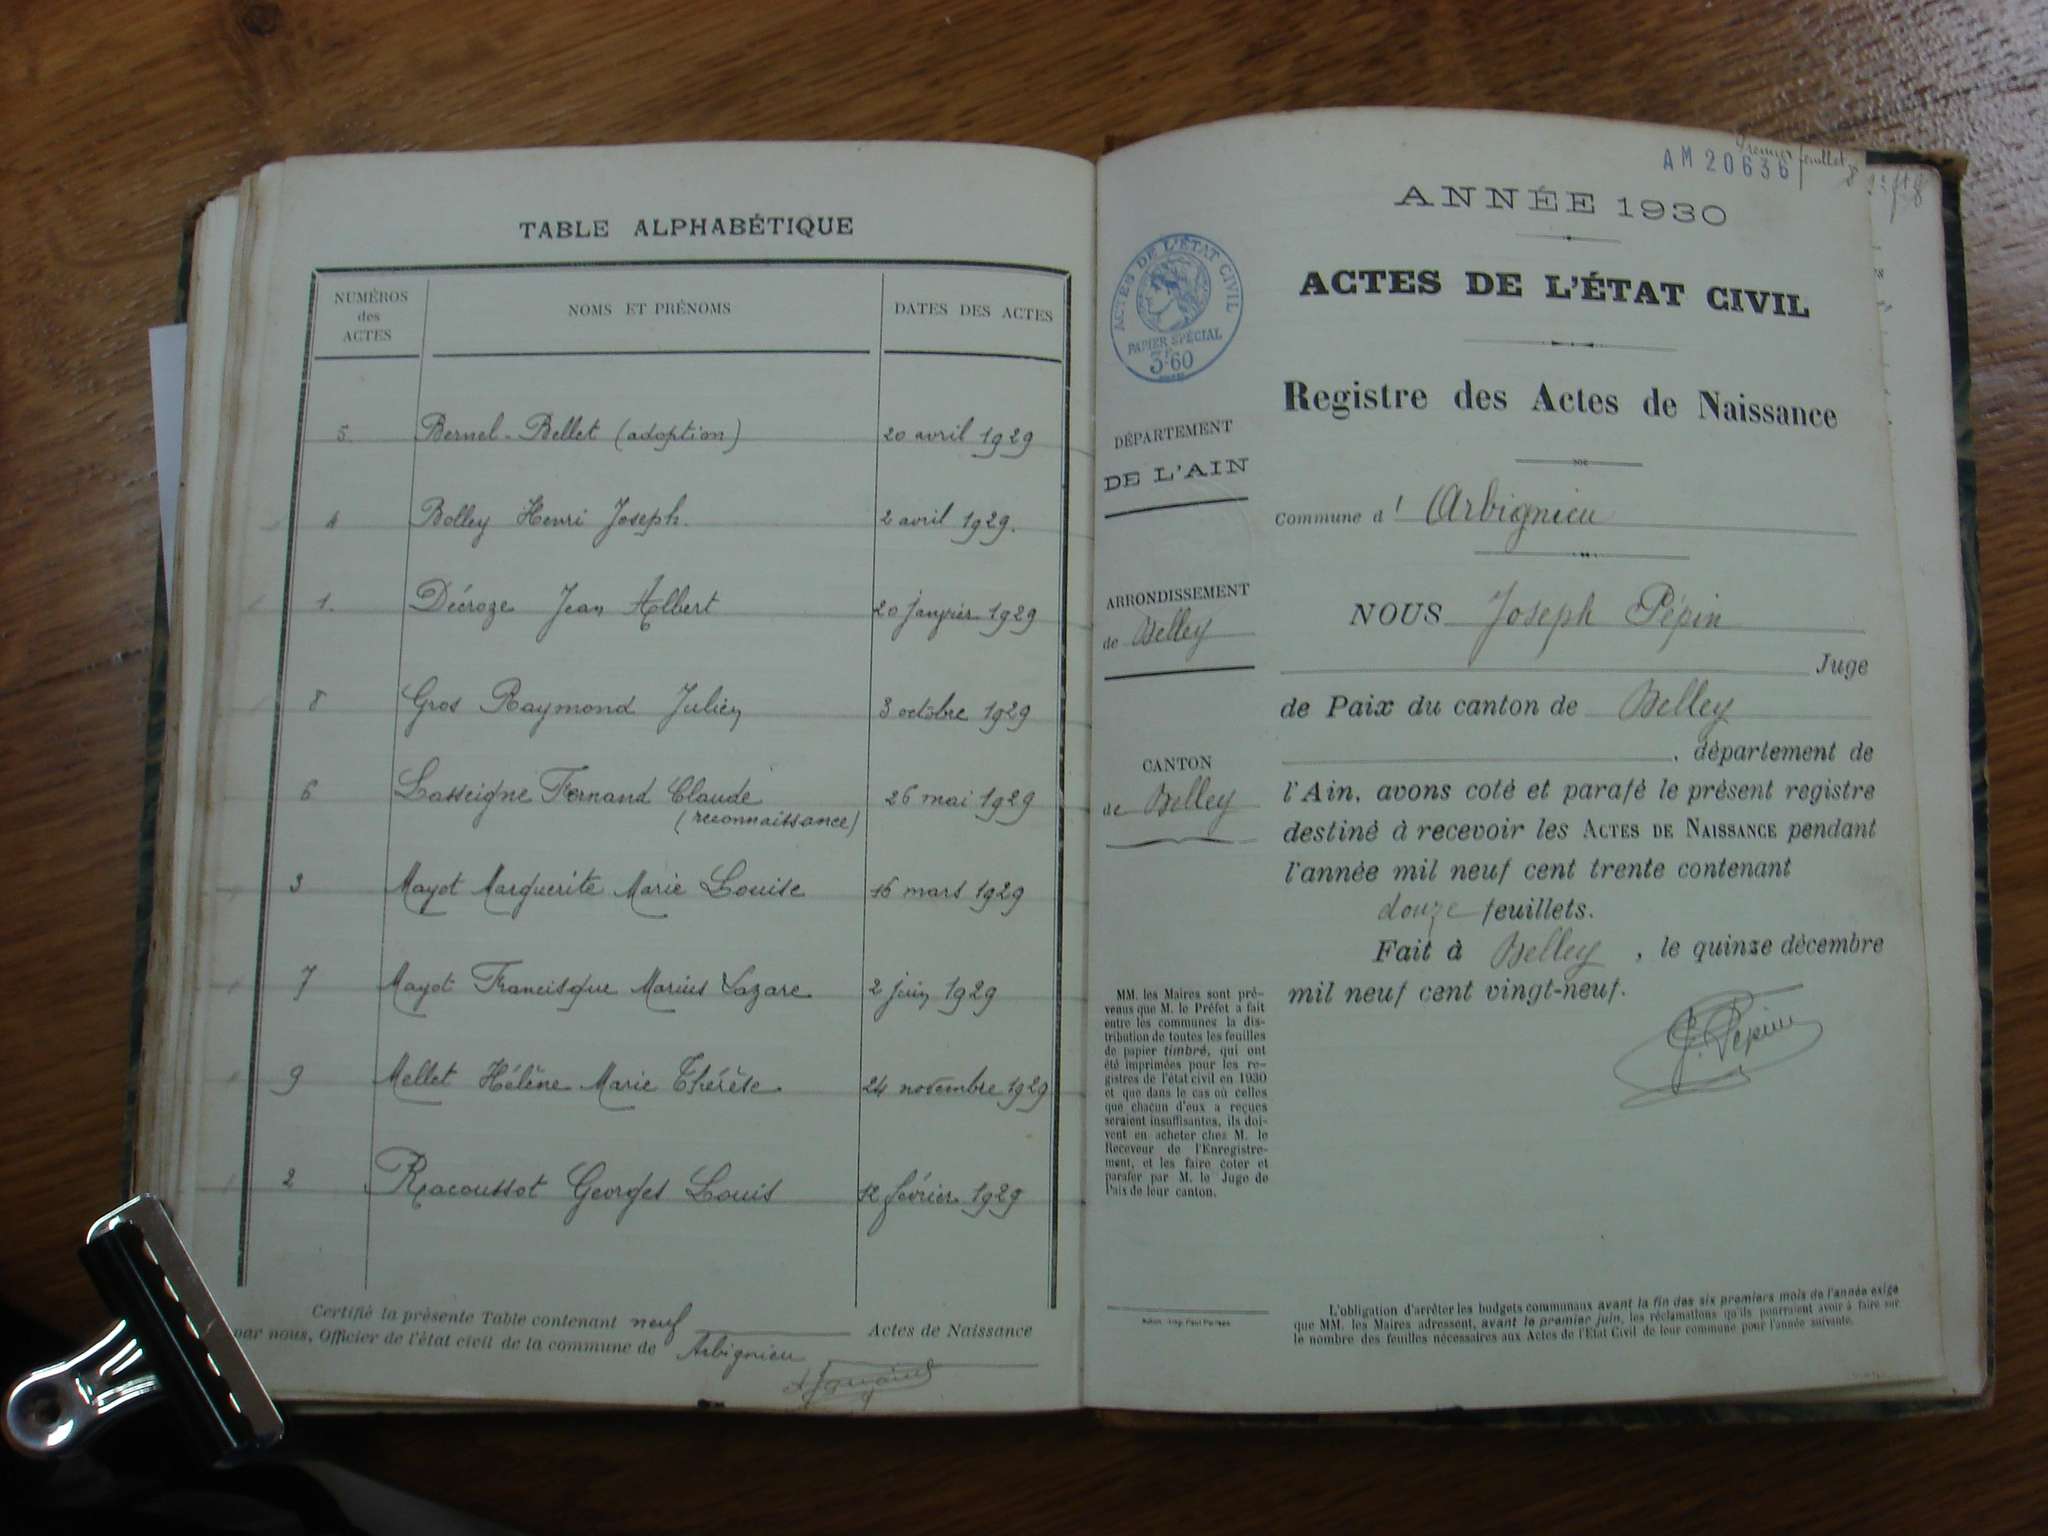 TABLE ALPHABÉTIQUE
NUMÉROS
des
ACTES
NOMS ET PRÉNOMS
DATES DES ACTES
5. Bernel-Bellet (adoption) 20 avril 1929
4 Bolley Henri Joseph. 2 avril 1929.
1. Décroze Jean Albert 20 janvier 1929
8 Gros Raymond Julien 3 octobre 1929
6 Lasseigne Fernand Claude 26 mai 1929
(reconnaissance)
3 Mayot Marguerite Marie Louise 16 mars 1929
7 Mayot Francisque Marius Lazare 2 juin 1929
9 Mellet Hélène Marie Thérèse 24 novembre 1929
2 Racoussot Georges Louis 12 février 1929
Certifié la présente Table contenant neuf Actes de Naissance
par nous, Officier de l'état civil de la commune de Arbignieu
AM 20636
premier feuillet
ANNÉE 1930
ACTES DE L'ÉTAT CIVIL
PAPIER SPÉCIAL
3F60
ACTES DE L'ÉTAT CIVIL
Registre des Actes de Naissance
DÉPARTEMENT
DE L'AIN
Commune d' Arbignieu
ARRONDISSEMENT
de Belley
CANTON
de Belley
NOUS Joseph Pépin
Juge
de Paix du canton de Belley
, département de
l'Ain, avons coté et parafé le présent registre
destiné à recevoir les ACTES DE NAISSANCE pendant
l'année mil neuf cent trente contenant
douze feuillets.
Fait à Belley, le quinze décembre
mil neuf cent vingt-neuf.
J. Pépin
MM. les Maires sont pré-
venus que M. le Préfet a fait
entre les communes la dis-
tribution de toutes les feuilles
de papier timbré, qui ont
été imprimées pour les re-
gistres de l'état civil en 1930
et que dans le cas où celles
que chacun d'eux a reçues
seraient insuffisantes, ils doi-
vent en acheter chez M. le
Receveur de l'Enregistre-
ment, et les faire coter et
parafer par M. le Juge de
Paix de leur canton.
L'obligation d'arrêter les budgets communaux avant la fin des six premiers mois de l'année exige
que MM. les Maires adressent, avant le premier juin, les réclamations qu'ils pourraient avoir à faire sur
le nombre des feuilles nécessaires aux Actes de l'État Civil de leur commune pour l'année suivante.